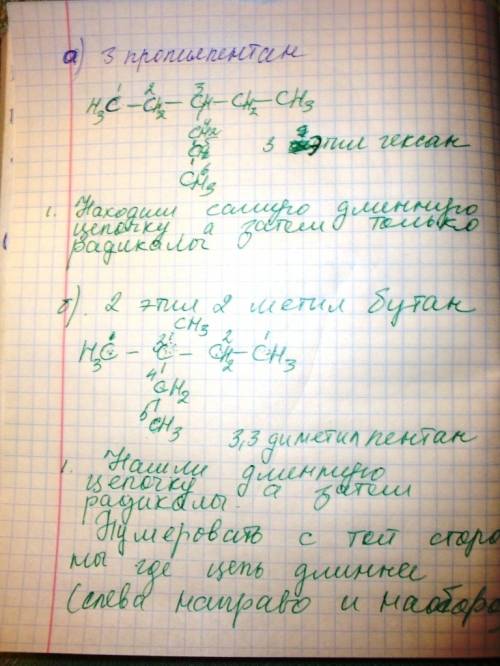 а) 3 пропилпентан
1 2 3
H3C – CH2 – CH – CH2 – CH3
CH2
CH2
CH3
3 этил гексан
1. Находим самую длинную
цепочку а затем только
радикалы
б). 2 этил 2 метил бутан
CH3
3 2 1
H3C – C – CH2 – CH3
4 CH2
5 CH3
3,3 диметил пентан
1. Нашли длинную
цепочку а затем
радикалы.
Нумеровать с той сторо
ны где цепь длиннее
(слева направо и наоборо